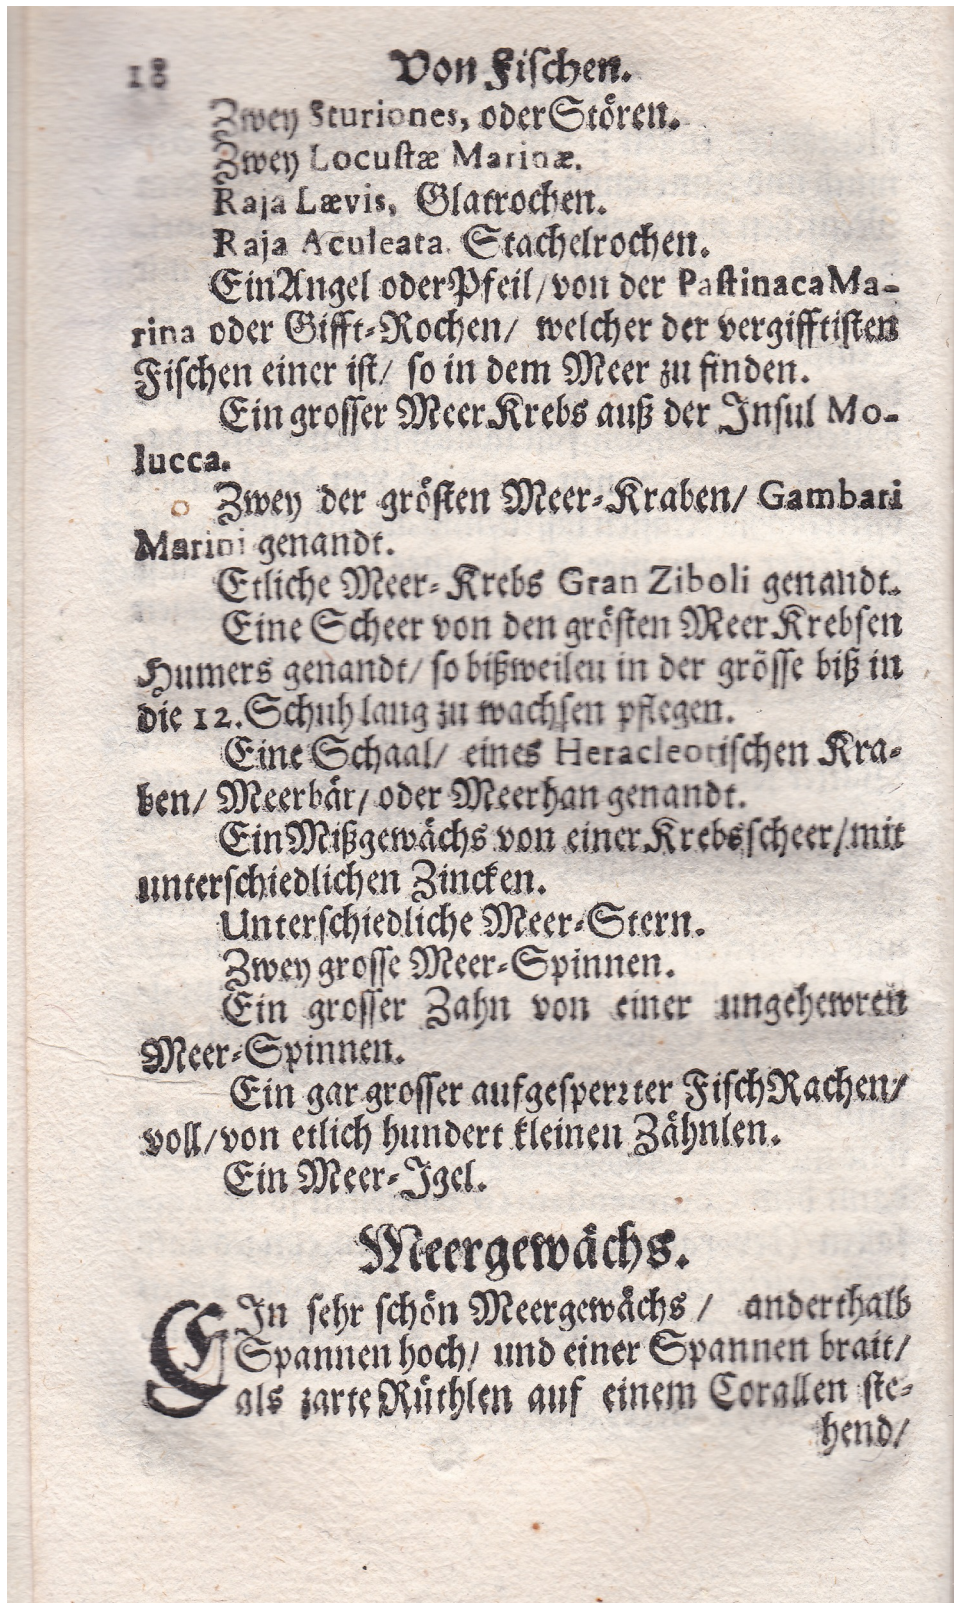 18 Von Fischen.
Zwey Sturiones, oder Stören.
Zwey Locustæ Marinæ.
Raja Lævis, Glatrochen.
Raja Aculeata. Stachelrochen.
Ein Angel oder Pfeil/ von der Pastinaca Ma-
rina oder Gifft-Rochen/ welcher der vergifftisten
Fischen einer ist/ so in dem Meer zu finden.
Ein grosser Meer Krebs auß der Insul Mo-
lucca.
Zwey der grösten Meer-Kraben/ Gambari
Marini genandt.
Etliche Meer-Krebs Gran Ziboli genandt.
Eine Scheer von den grösten Meer Krebsen
Humers genandt/ so bißweilen in der grösse biß in
die 12. Schuh lang zu wachsen pflegen.
Eine Schaal/ eines Heracleotischen Kra-
ben/ Meerbär/ oder Meerhan genandt.
Ein Mißgewächs von einer Krebsscheer/ mit
unterschiedlichen Zincken.
Unterschiedliche Meer-Stern.
Zwey grosse Meer-Spinnen.
Ein grosser Zahn von einer ungehewren
Meer-Spinnen.
Ein gar grosser aufgesperrter Fisch Rachen/
voll/ von etlich hundert kleinen Zähnlen.
Ein Meer-Igel.
Meergewächs.
EIn sehr schön Meergewächs/ anderthalb
Spannen hoch/ und einer Spannen brait/
als zarte Rüthlen auf einem Corallen ste-
hend/